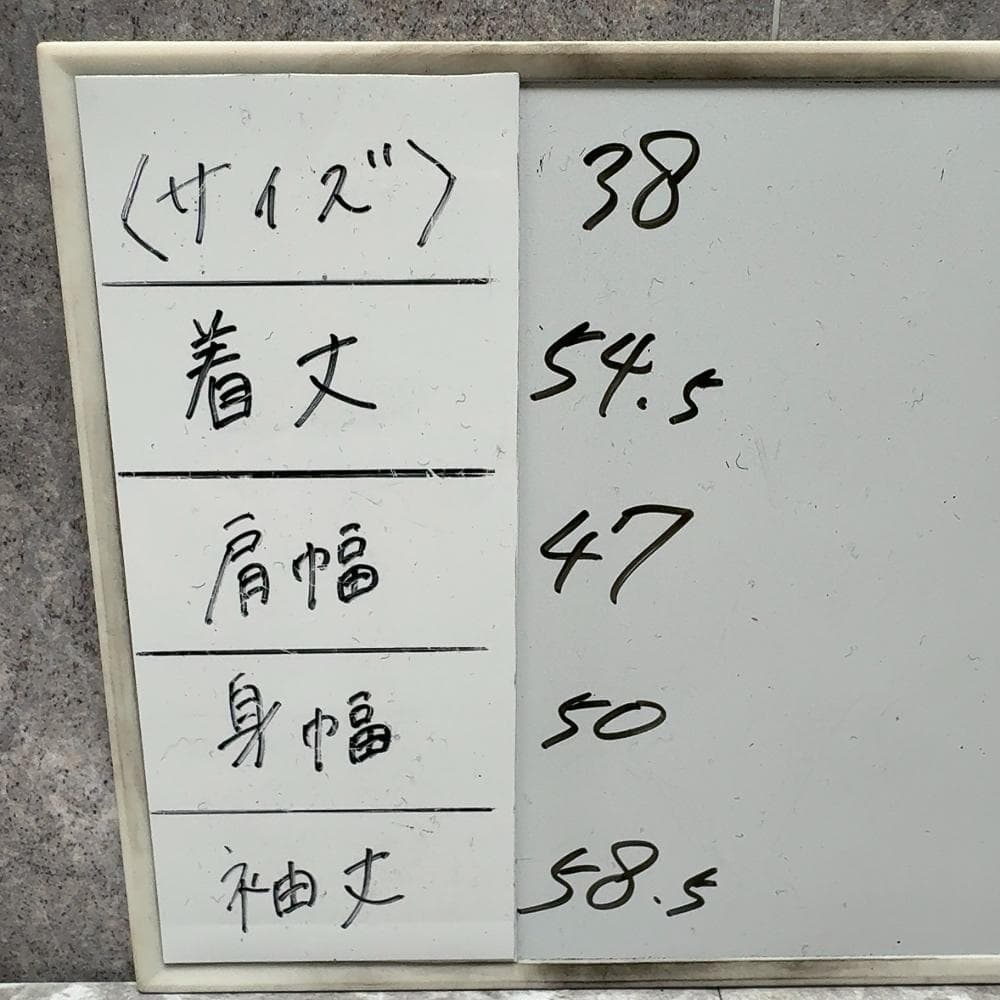 〈サイズ〉 38
着丈 54.5
肩幅 47
身幅 50
袖丈 58.5